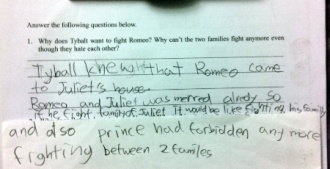 Answer the following questions below.
1. Why does Tybalt want to fight Romeo? Why can't the two families fight anymore even
though they hate each other?
Tyball knew that Romeo came
to Juliet's house.
Romeo and Juliet was merred alredy So
if he fight family of Juliet It would be like fighting his family
and also prince had forbidden any more
fighting between 2 familes